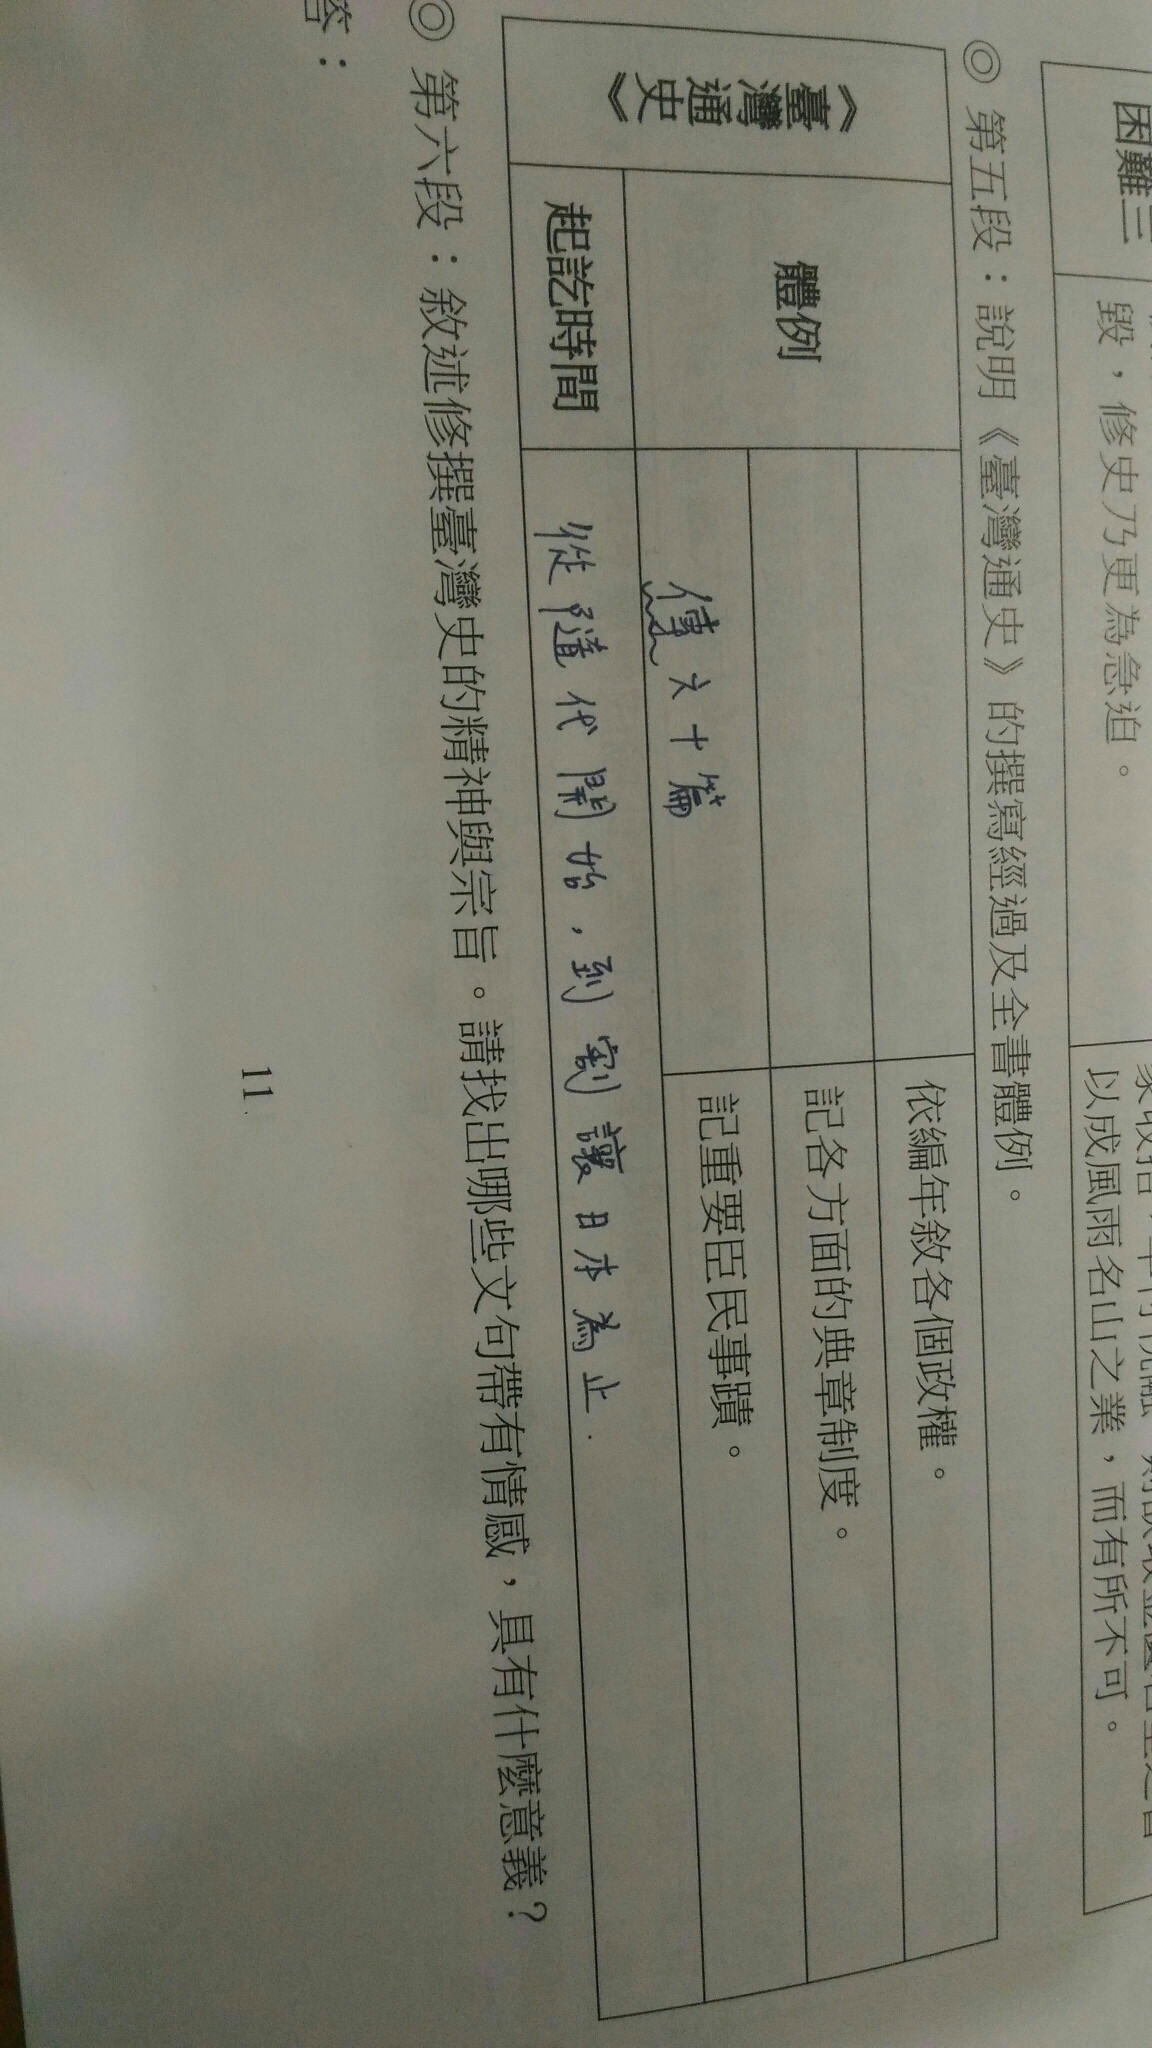 困難三
毀，修史乃更為急迫。
以成風雨名山之業，而有所不可。
◎ 第五段：說明《臺灣通史》的撰寫經過及全書體例。
《臺灣通史》
體例
依編年敘各個政權。
記各方面的典章制度。
傳六十篇
記重要臣民事蹟。
起訖時間
從隨代開始，到割讓日本為止.
◎ 第六段：敘述修撰臺灣史的精神與宗旨。請找出哪些文句帶有情感，具有什麼意義？
答：
11